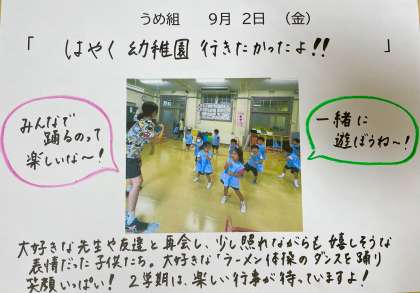 うめ組　9月2日（金）
「はやく幼稚園行きたかったよ!!」
みんなで
踊るのって
楽しいな〜!
一緒に
遊ぼうね〜!
大好きな先生や友達と再会し、少し照れながらも嬉しそうな
表情だった子供たち。大好きな「ラーメン体操のダンスを踊り
笑顔いっぱい! 2学期は、楽しい行事が待っていますよ!